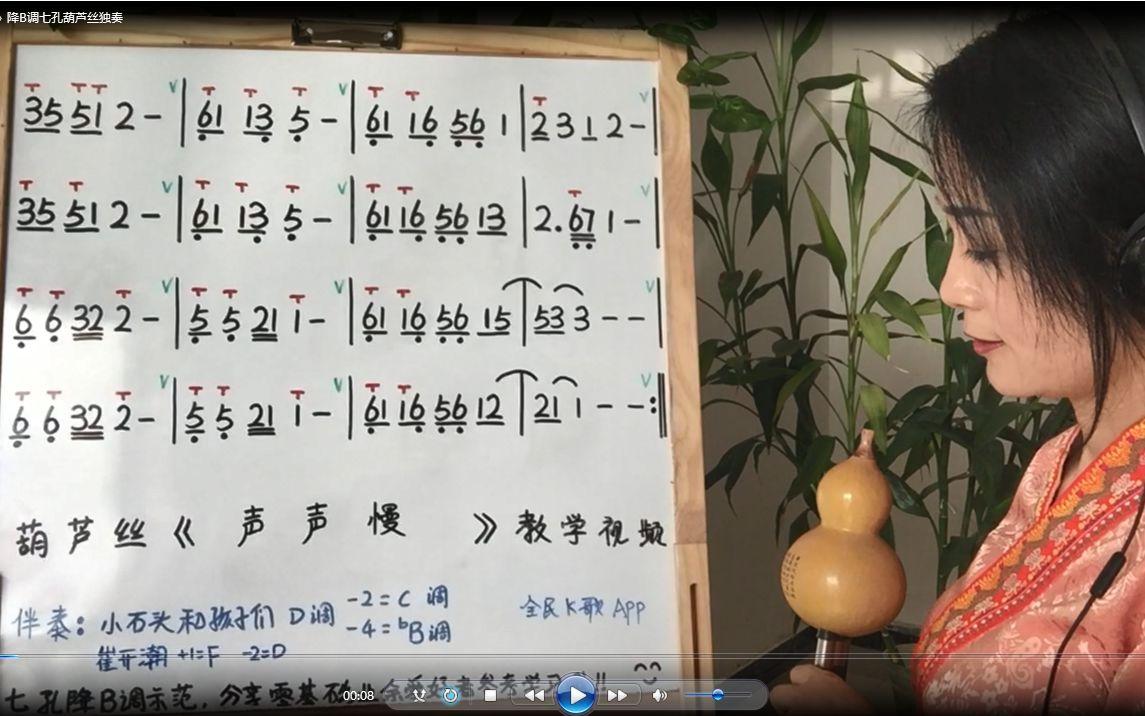 降B调七孔葫芦丝独奏
35 51 2 - | 61 13 5 - | 61 16 56 1 | 2 3 1 2 - |
35 51 2 - | 61 13 5 - | 61 16 56 13 | 2. 67 1 - |
6 6 32 2 - | 5 5 21 1 - | 61 16 56 15 | 53 3 - - |
6 6 32 2 - | 5 5 21 1 - | 61 16 56 12 | 21 1 - - :||
葫芦丝《声声慢》教学视频
伴奏：小石头和孩子们 D调 -2=C调
-4=bB调
全民K歌 App
崔开潮 +1=F -2=D
七孔降B调示范，分享零基础
00:08